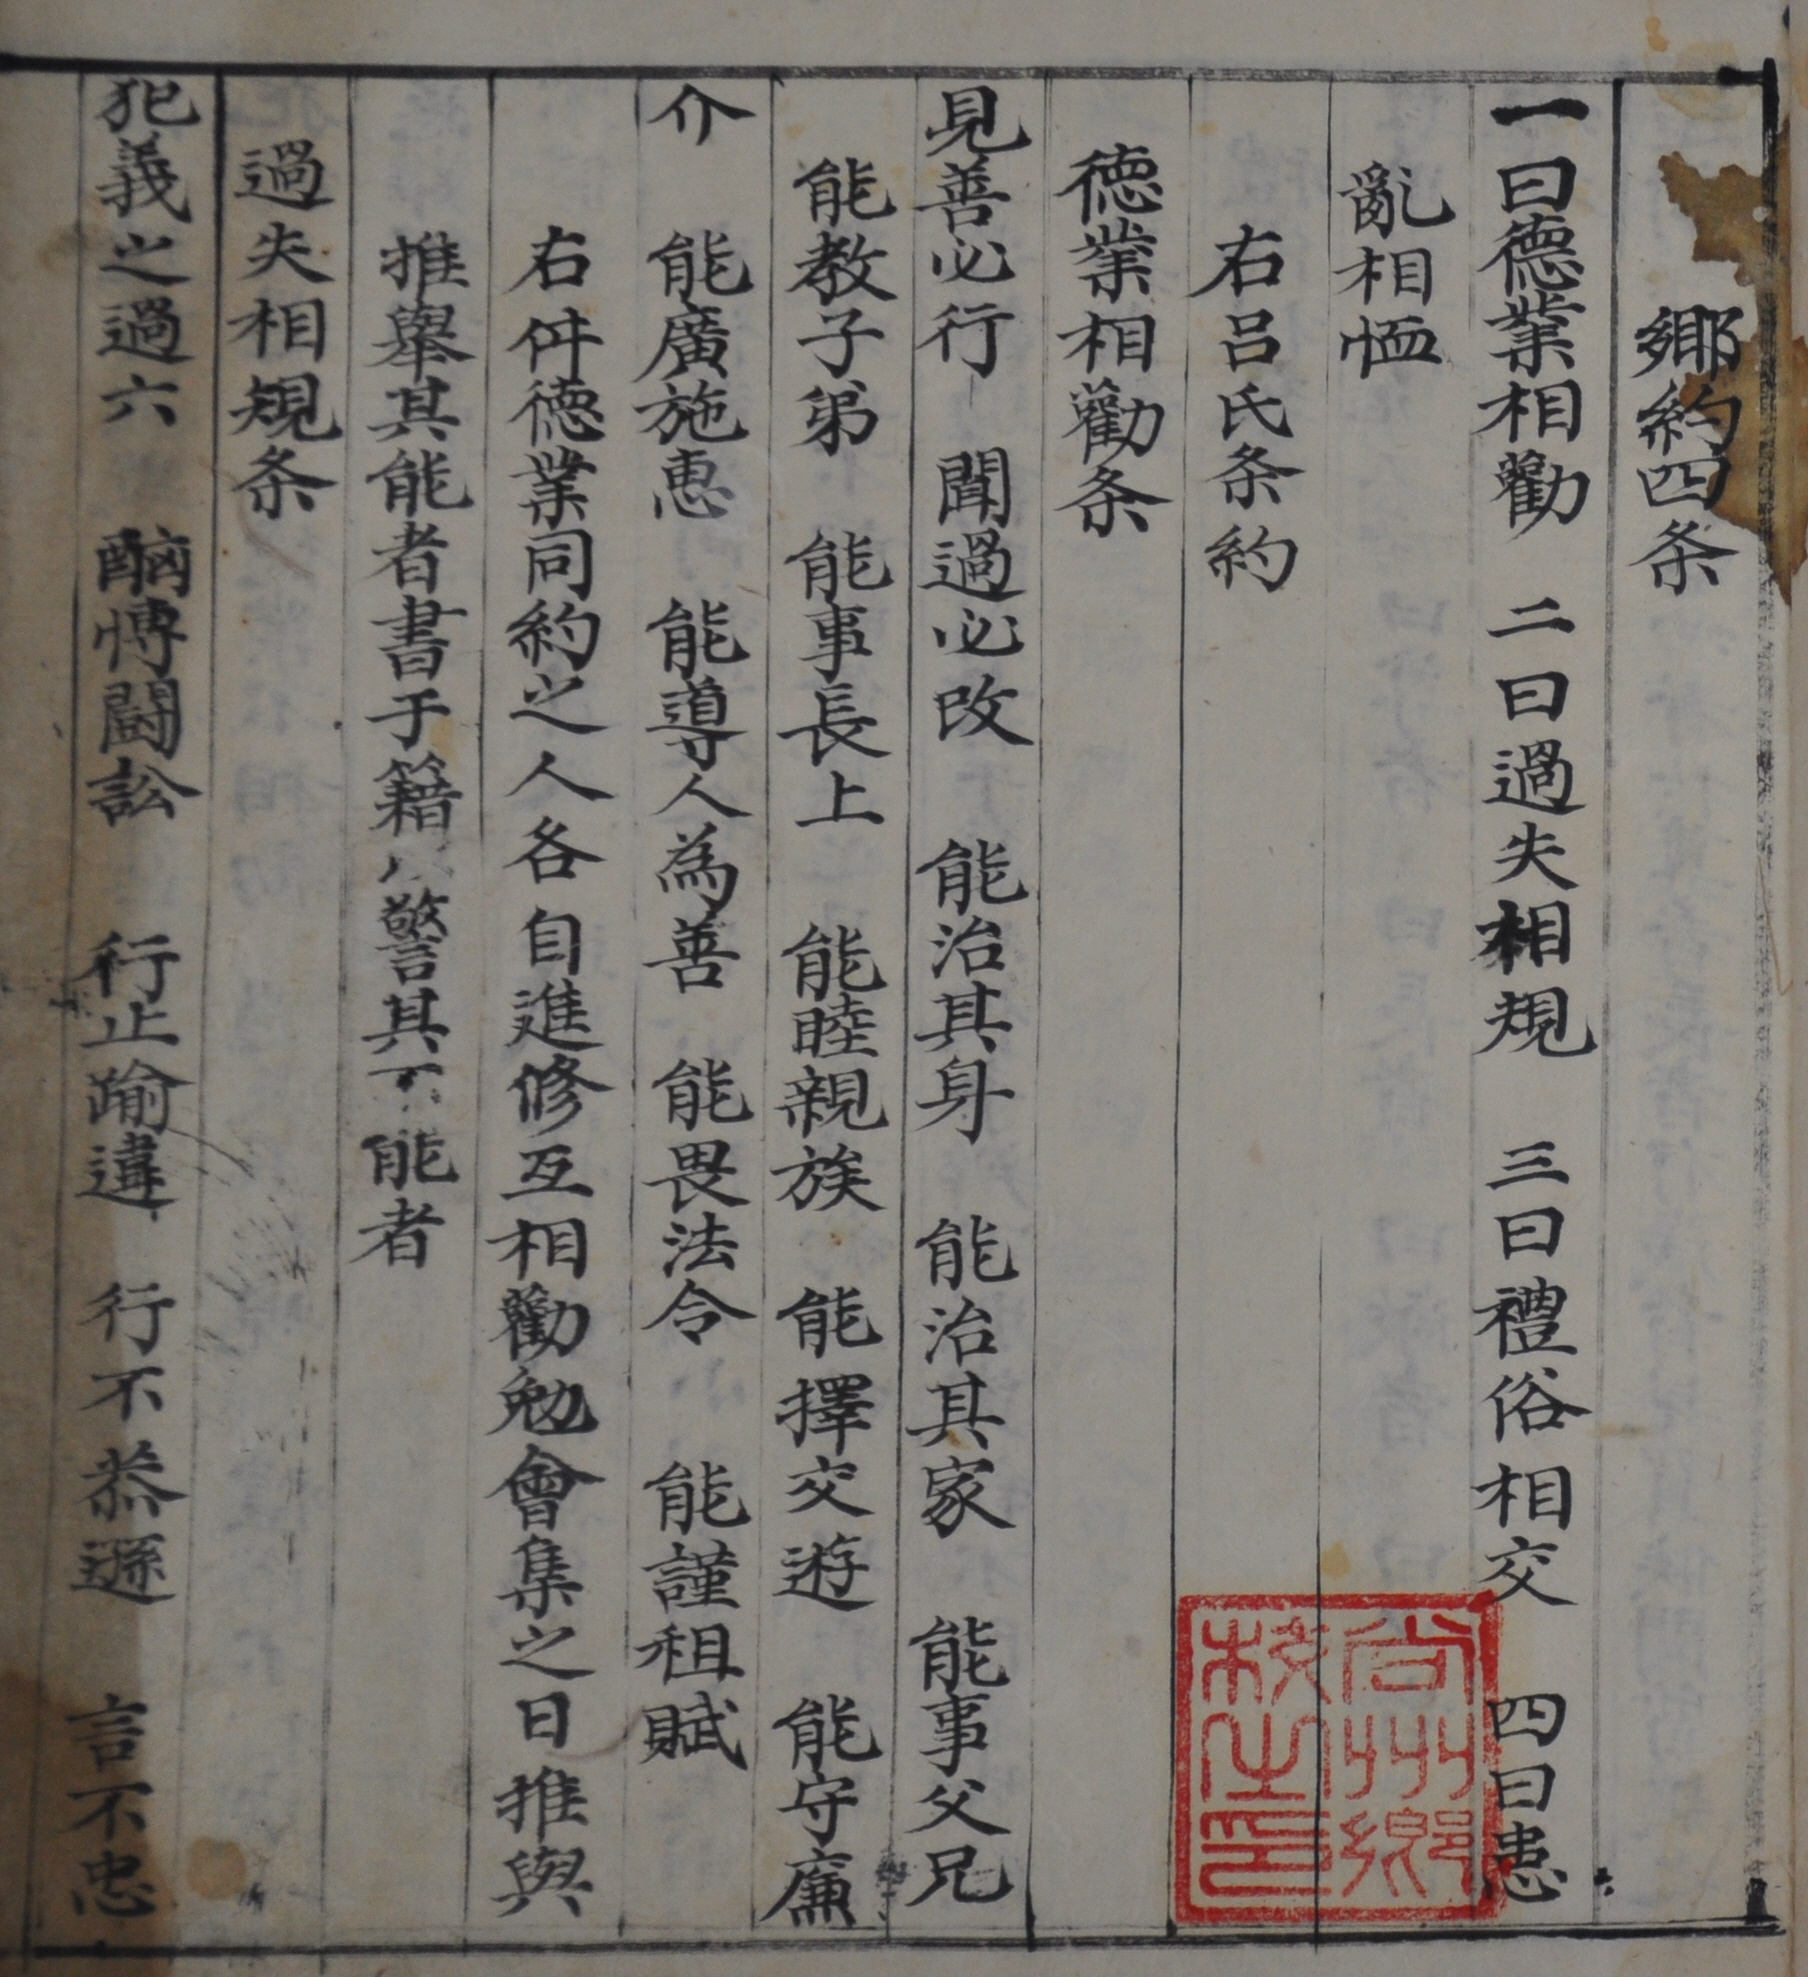 鄉約四条
一曰德業相勸 二曰過失相規 三曰禮俗相交 四曰患
亂相恤
右呂氏条約
德業相勸条
見善必行 聞過必改 能治其身 能治其家 能事父兄
能教子弟 能事長上 能睦親族 能擇交遊 能守廉
介 能廣施惠 能導人為善 能畏法令 能謹租賦
右件德業同約之人各自進修互相勸勉會集之日推與
推舉其能者書于籍以警其不能者
過失相規条
犯義之過六 酗愽鬪訟 行止踰違 行不恭遜 言不忠
尙州鄉
校之印